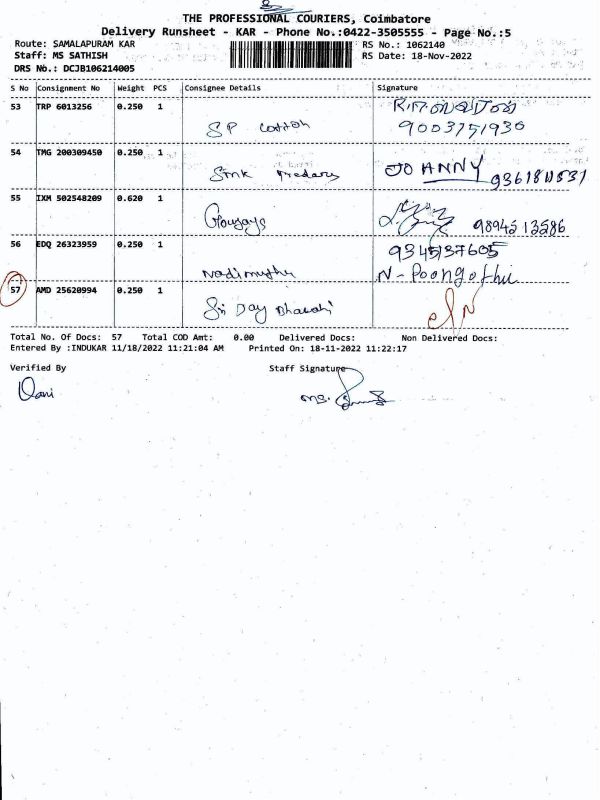 THE PROFESSIONAL COURIERS, Coimbatore
Delivery Runsheet - KAR - Phone No.:0422-3505555 - Page No.:5
Route: SAMALAPURAM KAR RS No.: 1062140
Staff: MS SATHISH RS Date: 18-Nov-2022
DRS No.: DCJB106214005
S No Consignment No Weight PCS Consignee Details Signature
53 TRP 6013256 0.250 1
SP cotton 9003751936
54 TMG 200309450 0.250 1 JOANNY
Smk
55 IXM 502548209 0.620 1
9894513586
56 EDQ 26323959 0.250 1 9345137605
Nadimuthu N-Poongothu
57 AMD 25620994 0.250 1
Sri Day Bharathi
Total No. Of Docs: 57 Total COD Amt: 0.00 Delivered Docs: Non Delivered Docs:
Entered By :INDUKAR 11/18/2022 11:21:04 AM Printed On: 18-11-2022 11:22:17
Verified By Staff Signature
Mani MS.